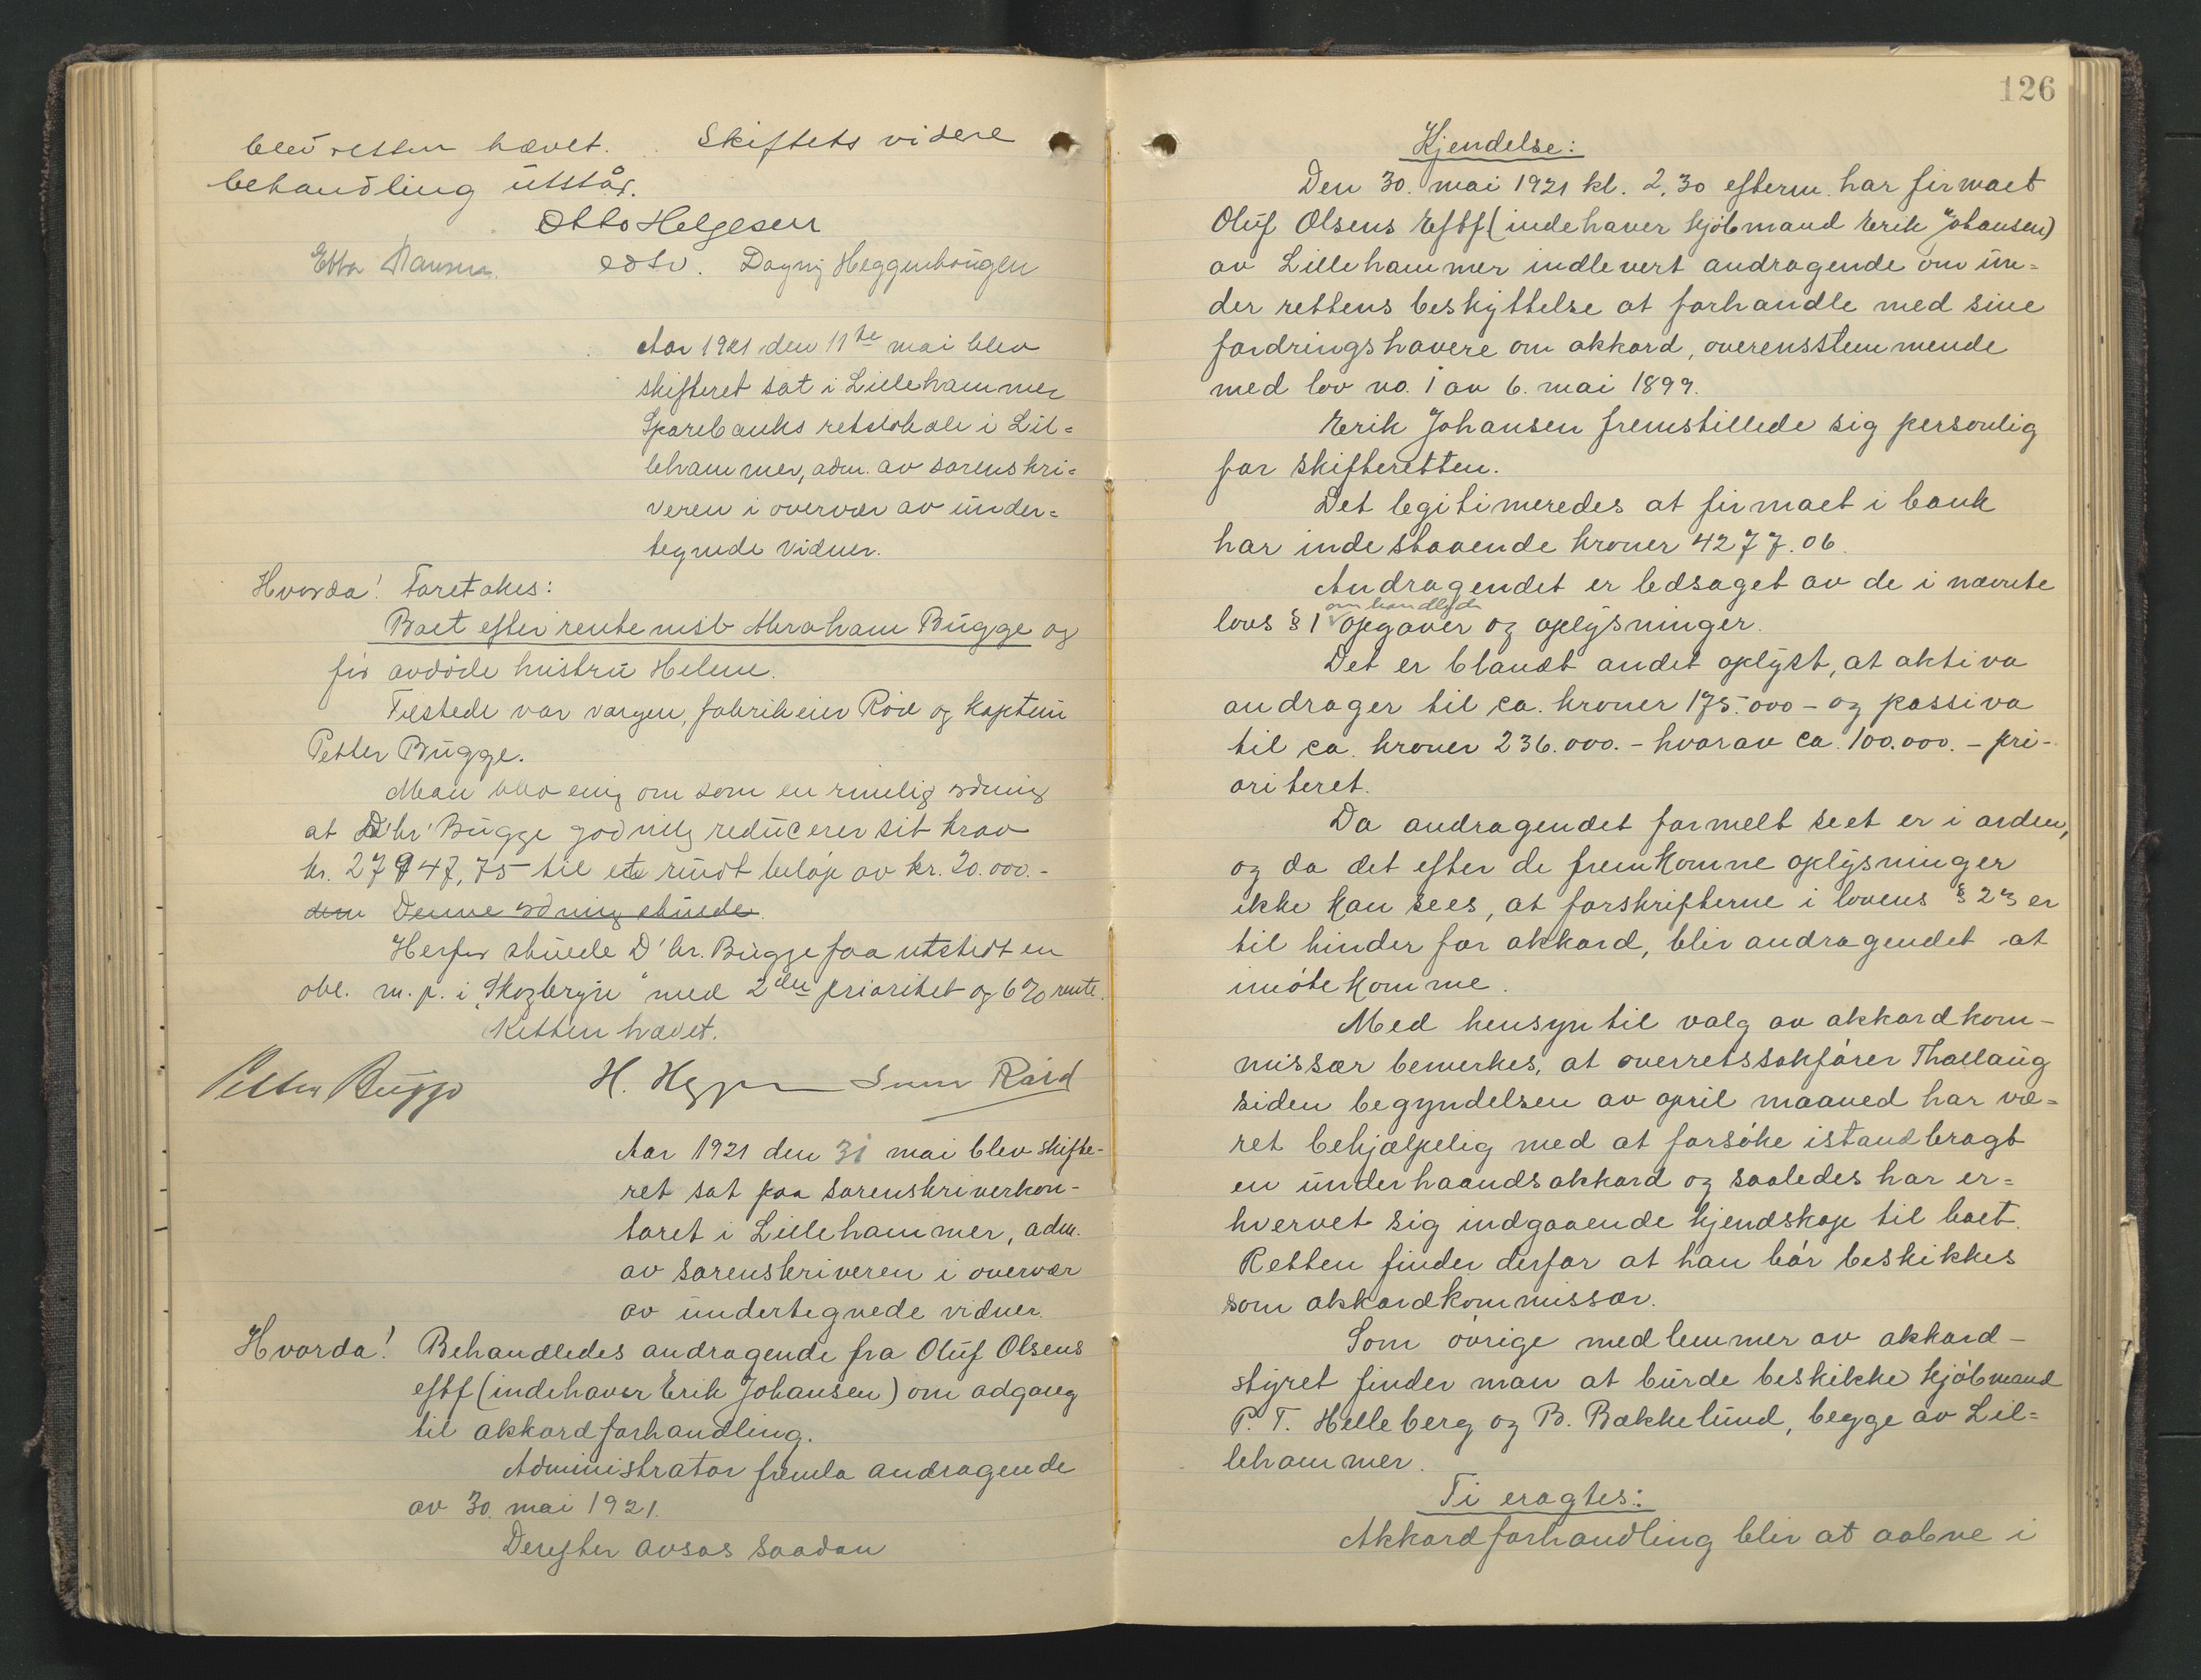 blev retten hævet. Skiftets videre
behandling utstår.
Otto Helgesen
Ebba Hansen. edsv. Dagny Heggenhougen
Aar 1921 den 11te mai blev
skifteret sat i Lillehammer
Sparebanks retslokale i Lil=
lehammer, adm. av sorenskri=
veren i overvær av under=
tegnede vidner.
Hvorda! Foretakes:
Boet efter rentenist Abraham Bugge og
før avdöde hustru Helene.
Tilstede var vergen, fabrikeier Röid og kaptein
Petter Bugge.
Man blev enig om som en rimelig ordning
at D'hr' Bugge godvillig reducerer sit krav
kr. 27947,75 til et rundt belöp av kr. 20.000.-
dem Denne ordning skulde.
Herfor skulde D'hr. Bugge faa utstedt en
obl. m. p. i "Skogbryn" med 2den prioritet og 6% rente.
Retten hævet.
Petter Bugge H. Röid
Aar 1921 den 31 mai blev skifte-
ret sat paa sorenskriverkon-
toret i Lillehammer, adm.
av sorenskriveren i overvær
av undertegnede vidner.
Hvorda! Behandledes andragende fra Oluf Olsens
eftf (indehaver Erik Johansen) om adgang
til akkordforhandling.
Administrator fremla andragende
av 30. mai 1921.
Derefter avsas saadan
126
Kjendelse:
Den 30. mai 1921 kl. 2,30 efterm. har firmaet
Oluf Olsens Eftf (indehaver kjöbmand Erik Johansen)
av Lillehammer indlevert andragende om un=
der rettens beskyttelse at forhandle med sine
fordringshavere om akkord, overensstemmende
med lov no. 1 av 6. mai 1899.
Erik Johansen fremstillede sig personlig
for skifteretten.
Det legitimeredes at firmaet i bank
har indestaaende kroner 4277.06.
Andragendet er ledsaget av de i nævnte
omhandlede
lovs § 1 opgaver og oplysninger.
Det er blandt andet oplyst, at aktiva
andrager til ca. kroner 175.000 - og passiva
til ca. kroner 236.000. - hvorav ca. 100.000. - pri-
oriteret.
Da andragendet formelt seet er i orden,
og da det efter de fremkomne oplysninger
ikke kan sees, at forskrifterne i lovens § 23 er
til hinder for akkord, blir andragendet at
imötekomme.
Med hensyn til valg av akkordkom-
missær bemerkes, at overretssakförer Thallaug
siden begyndelsen av april maaned har væ=
ret behjælpelig med at forsöke istandbragt
en underhaandsakkord og saaledes har er=
hvervet sig indgaaende kjendskap til boet.
Retten finder derfor at han bör beskikkes
som akkordkommissær.
Som övrige medlemmer av akkord-
styret finder man at burde beskikke kjöbmand
P. T. Helleberg og B. Bækkelund, begge av Lil=
lehammer.
Ti eragtes:
Akkordforhandling blir at aabne i